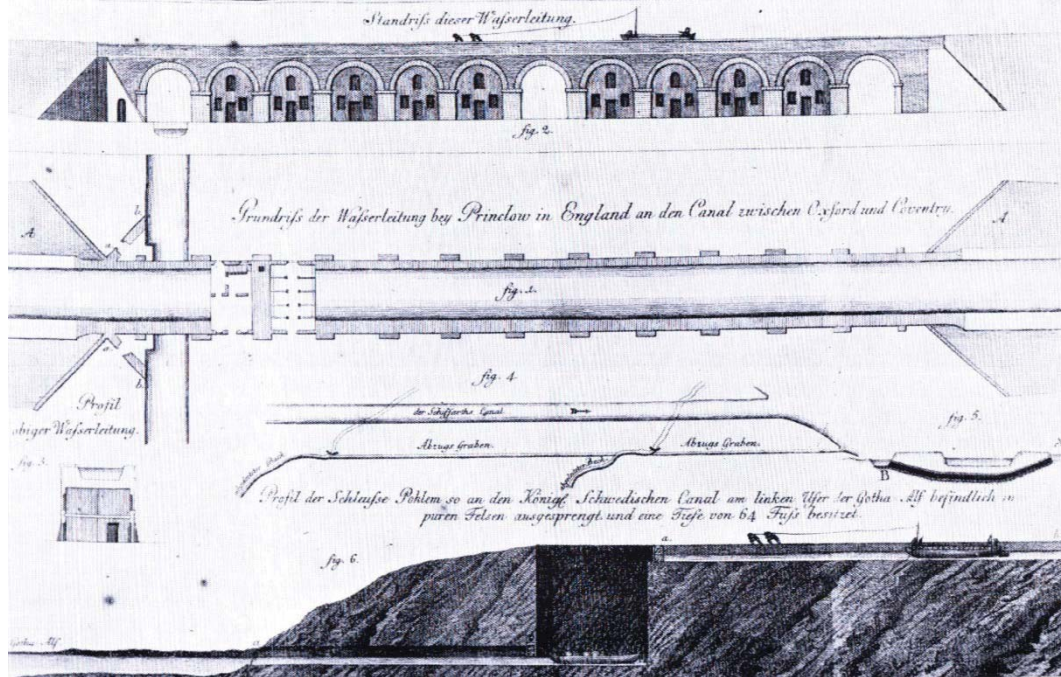 Standriß dieser Wasserleitung.
fig. 2.
Grundriß der Wasserleitung bey Princlow in England an den Canal zwischen Oxford und Coventry.
A
A
b.
a.
fig. 1.
a.
b.
Profil
obiger Wasserleitung.
fig. 3.
fig. 4.
der Schiffarths Canal.
Abzugs Graben.
Abzugs Graben.
fig. 5.
B
Profil der Schleuse Pohlem so an den Königl. Schwedischen Canal am linken Ufer der Gotha-Alf befindlich in
puren Felsen ausgesprengt und eine Tiefe von 64 Fuss besitzet.
fig. 6.
a.
Gotha-Alf